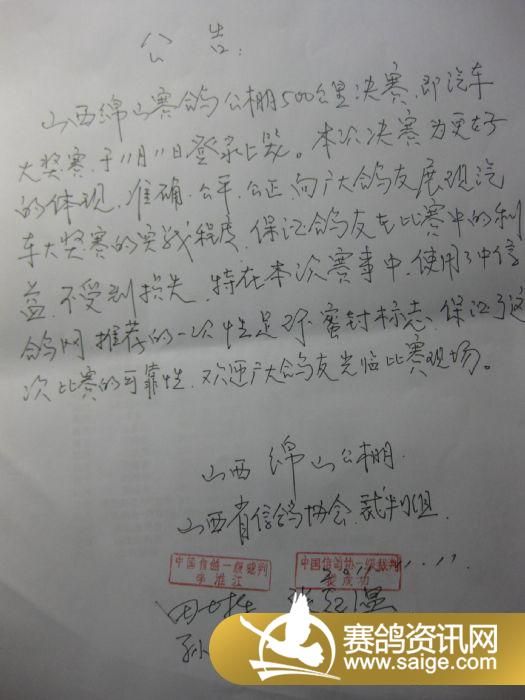 公告:
山西绵山赛鸽公棚500公里决赛、即汽车
大奖赛,于11月11日登录上笼。本次决赛为更好
的体现、准确、公平、公正、向广大鸽友展现汽
车大奖赛的实战程度,保证鸽友在比赛中的利
益,不受到损失,特在本次赛事中,使用了中信
鸽网推荐的一次性足环密封标志,保证了这
次比赛的可靠性,欢迎广大鸽友光临比赛现场。
山西绵山公棚
山西省信鸽协会裁判组
中国信鸽一级裁判
中国信鸽协一级裁判
孙
赛鸽资讯网
www.saige.com